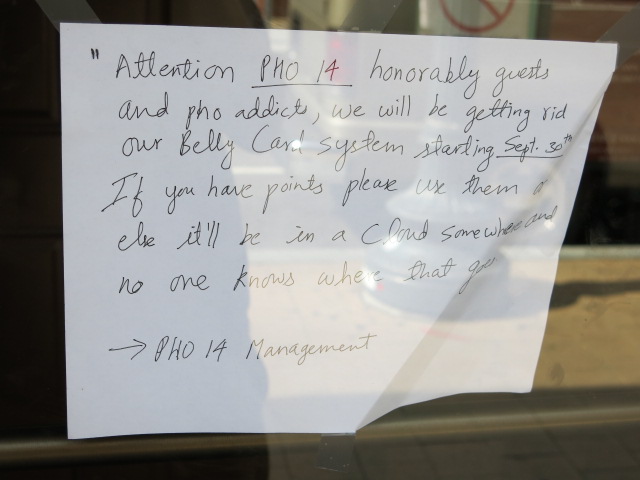 " Attention PHO 14 honorably guests
and pho addicts, we will be getting rid
our Belly Card system starting Sept. 30th
If you have points please use them
else it'll be in a Cloud somewhere and
no one knows where that goes
→ PHO 14 Management